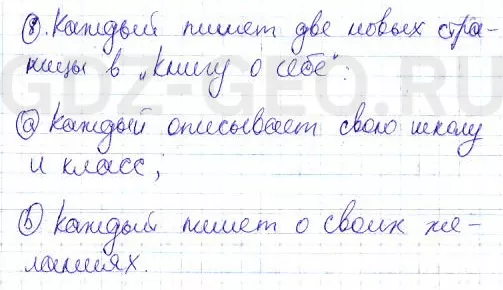 8. Каждый пишет две новых стра-
ницы в „Книгу о себе“:
a) Каждый описывает свою школу
и класс;
b) Каждый пишет о своих же-
ланиях.
GDZ-GEO.RU